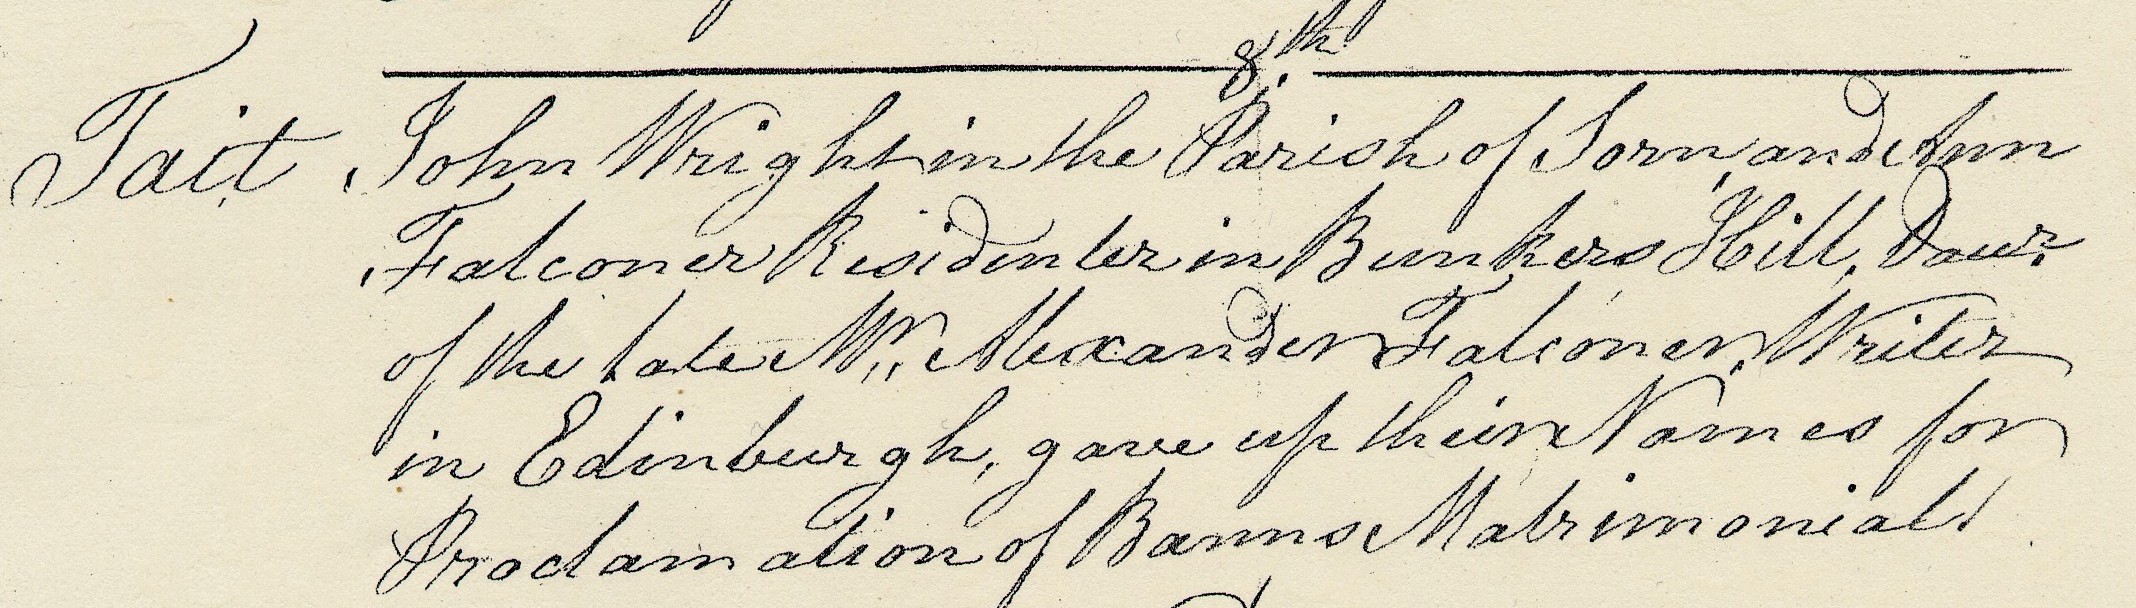 8th
Tait John Wright in the Parish of Sorn, and Ann
Falconer Residenter in Bunkers Hill, Daur.
of the late Mr. Alexander Falconer, Writer
in Edinburgh, gave up their Names for
Proclamation of Banns Matrimonial.